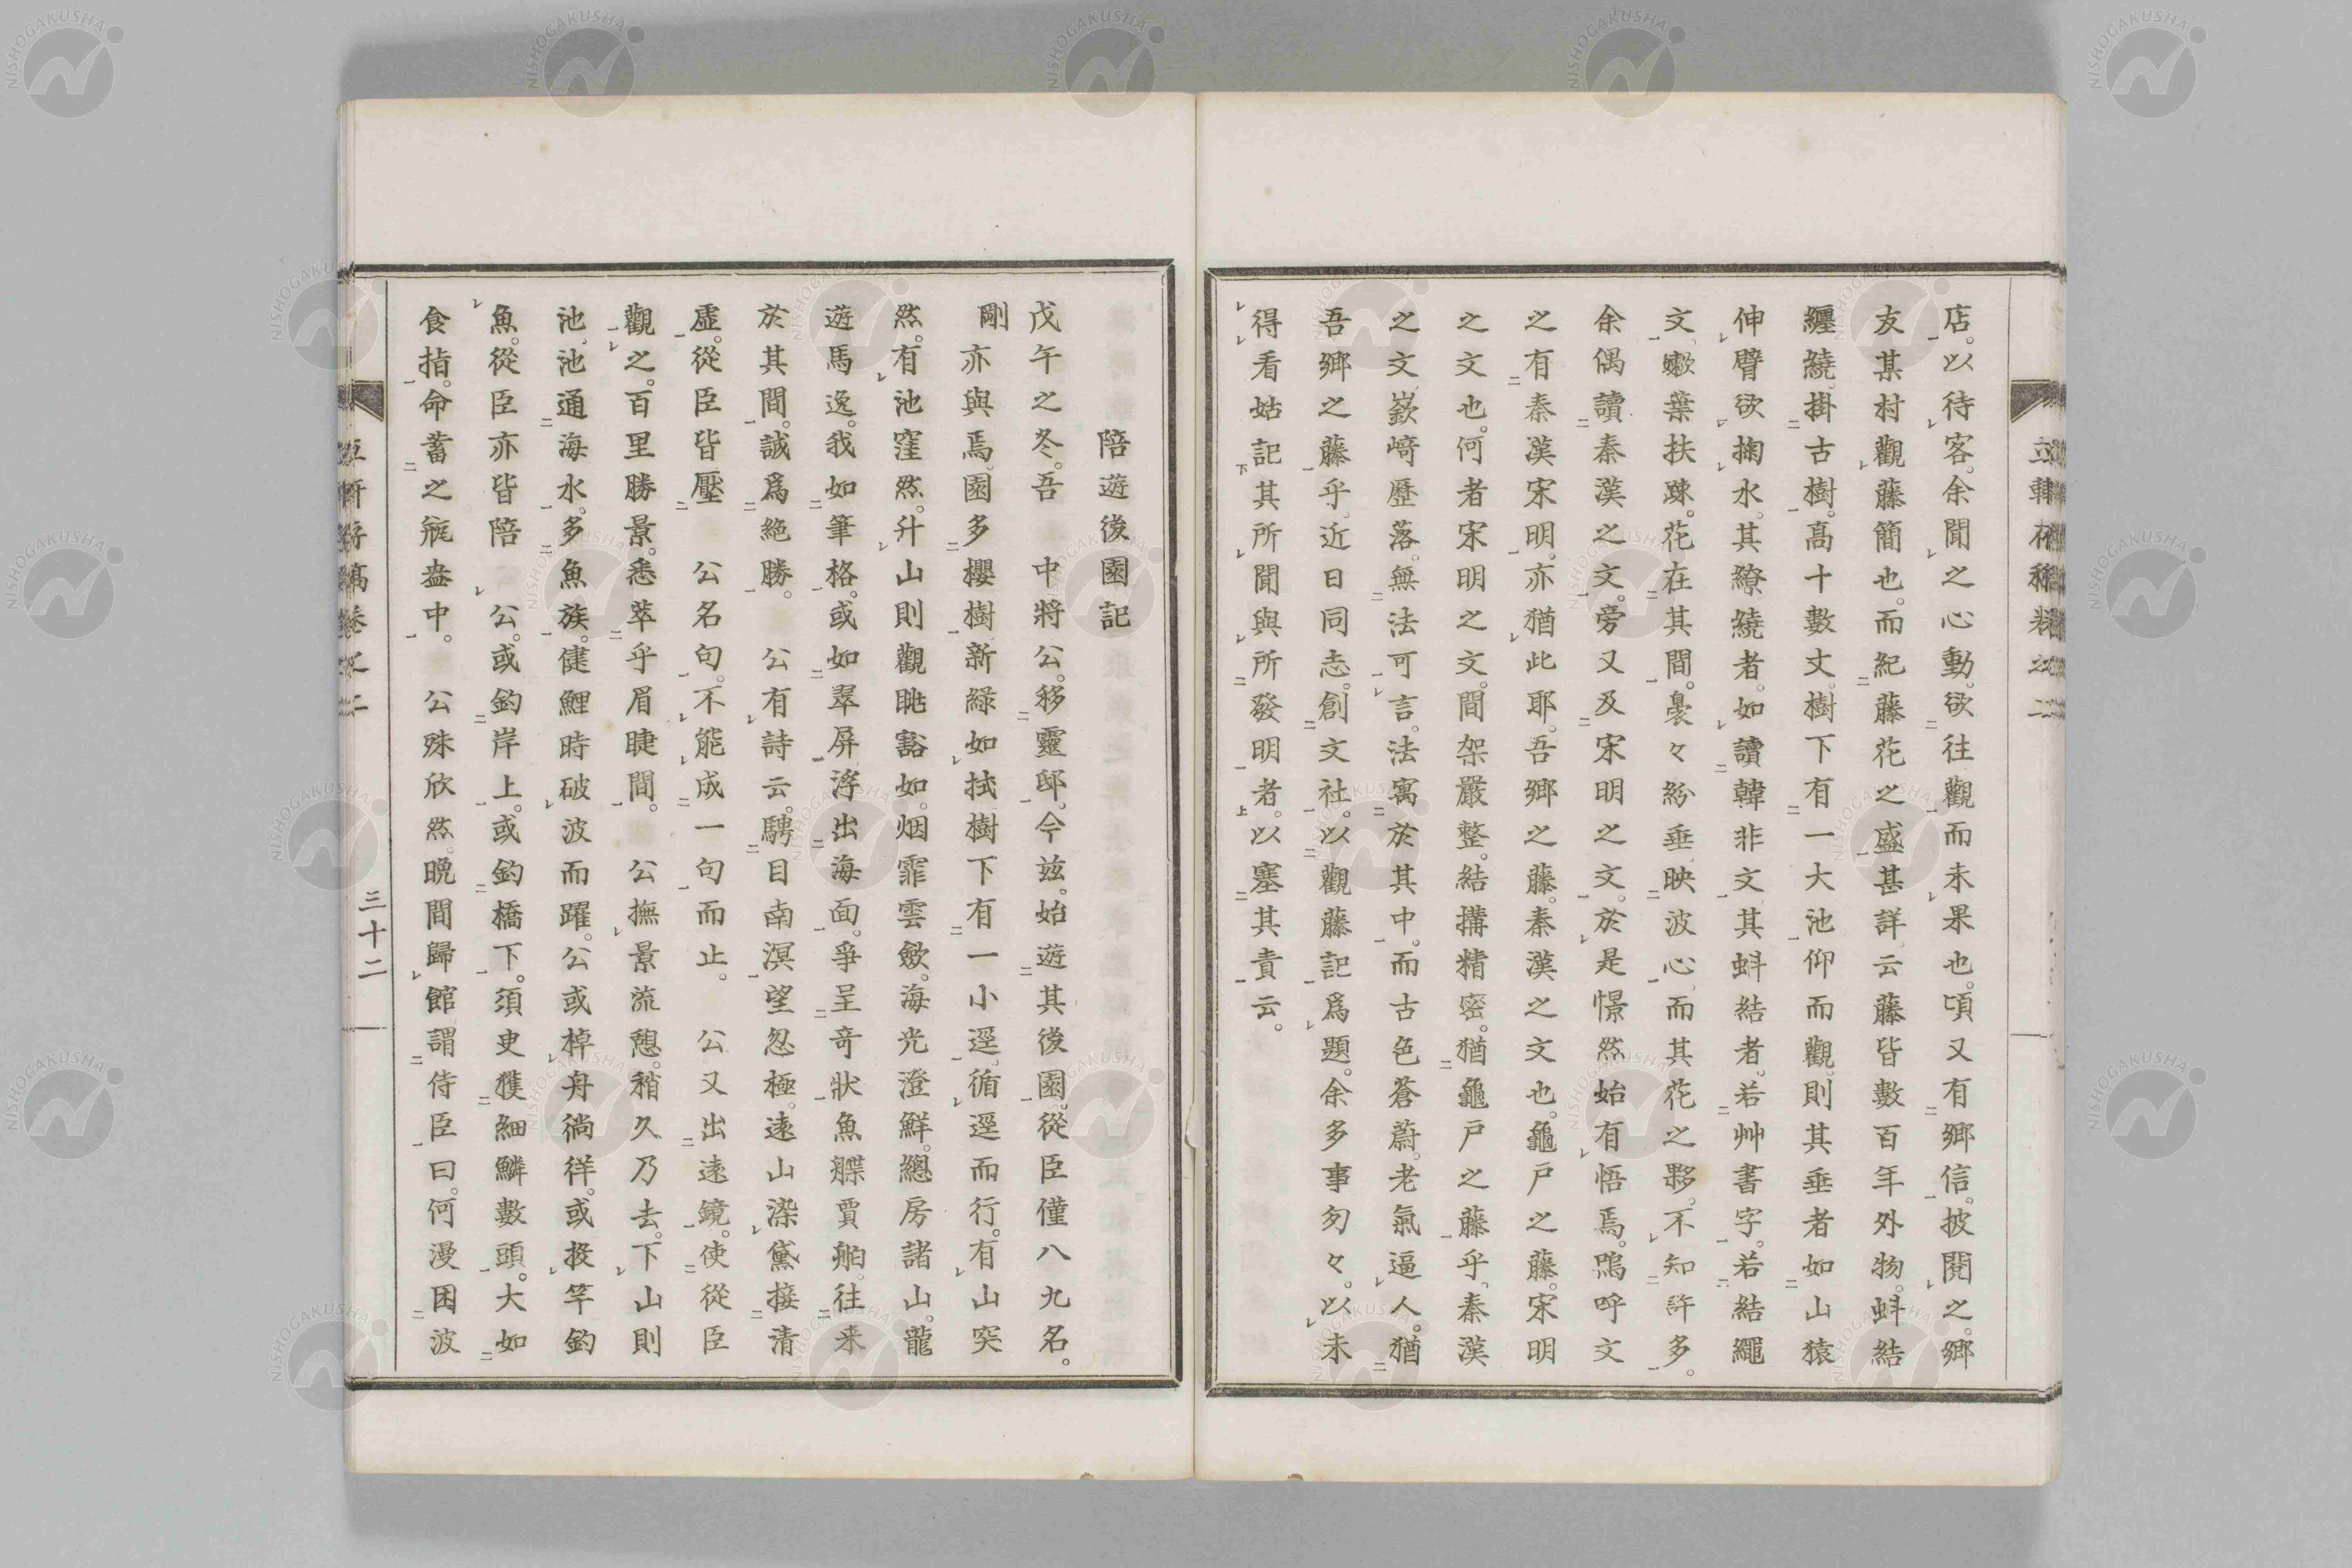 店。以待客、余聞之心動。欲往觀而未果也。頃又有鄉信。披閱之。鄉
友某村觀藤簡也。而紀藤花之盛甚詳。云藤皆數百年外物。蚪結
纏繞。掛古樹。高十數丈。樹下有一大池仰而觀。則其垂者如山猿
伸臂欲掬水。其繚繞者。如讀韓非文。其蚪結者。若艸書字。若結繩
文。嫩葉扶踈。花在其間。裊々紛垂、映波心、而其花之夥。不知許多。
余偶讀秦漢之文。旁又及宋明之文。於是憬然始有悟焉。嗚呼文
之有秦漢宋明。亦猶此耶。吾鄉之藤。秦漢之文也。龜戶之藤。宋明
之文也。何者宋明之文。間架嚴整。結搆精密。猶龜戶之藤乎。秦漢
之文、嶔崎歷落。無法可言。法寓於其中。而古色蒼蔚。老氣逼人。猶
吾鄉之藤乎。近日同志。創文社。以觀藤記爲題。余多事匆々。以未
得看姑記其所聞與所發明者。以塞其責云。
陪遊後園記
戊午之冬。吾 中將公。移靈邸、今玆。始遊其後園。從臣僅八九名。
剛亦與焉。園多櫻樹新緑如拭樹下有一小逕。循逕而行。有山突
然。有池窪然。升山則觀眺豁如。烟霏雲斂。海光澄鮮。總房諸山。龍
遊馬逸。我如筆格。或如翠屏浮出海面。爭呈奇狀魚艓賈舶。往来
於其間。誠爲絶勝。 公有詩云。騁目南溟望忽極。遠山染黛接清
虛。從臣皆壓 公名句。不能成一句而止。 公又出遠鏡。使從臣
觀之。百里勝景。悉萃乎眉睫間。 公撫景流憩。稍久乃去。下山則
池、池通海水。多魚族。健鯉時破波而躍。公或棹舟徜徉。或投竿釣
魚。從臣亦皆陪 公。或釣岸上。或釣橋下。須臾獲細鱗數頭。大如
食指。命蓄之瓶盎中。 公殊欣然。晩間歸館謂侍臣曰。何漫困波
三十二